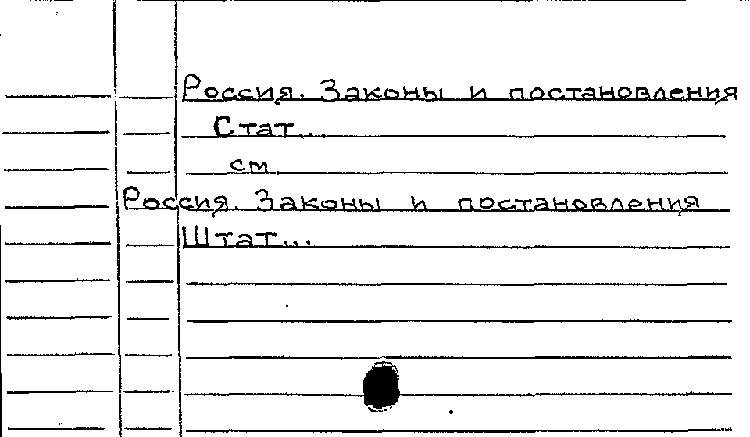 Россия. Законы и постановления
Стат...
см
Россия. Законы и постановления
Штат...